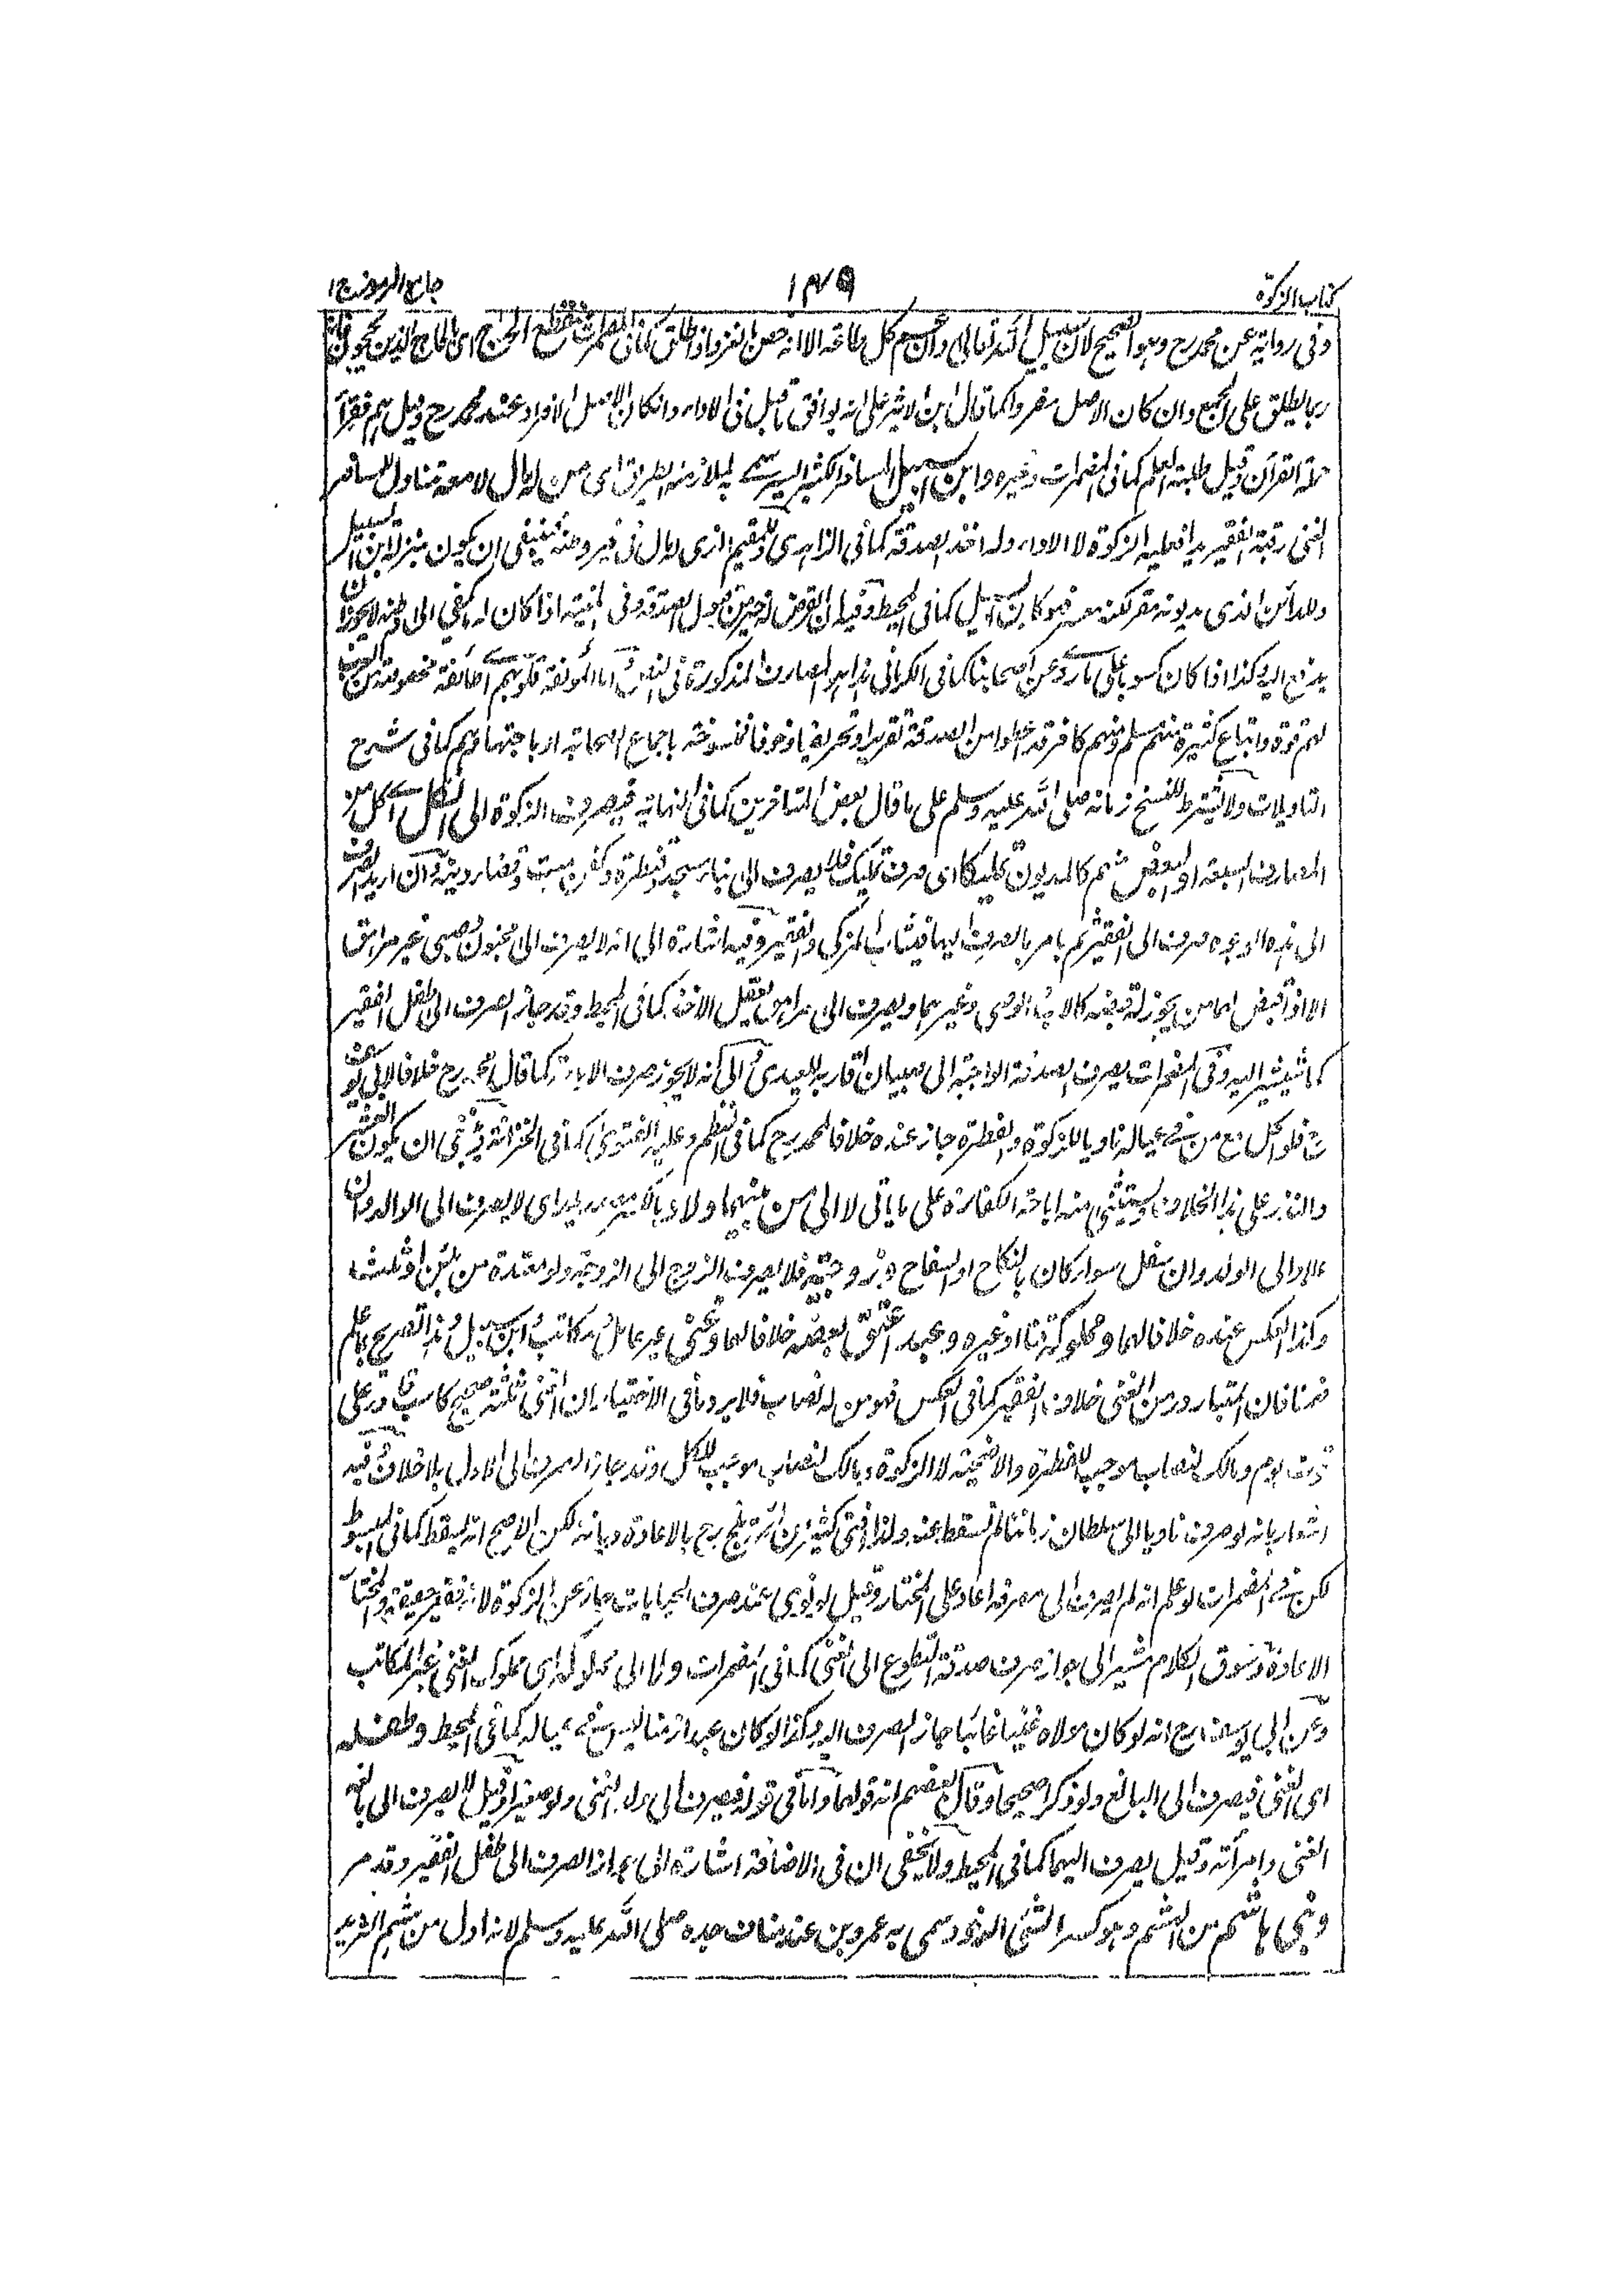 كتاب الزكوة
١٤٩
جامع الرموز ج ١
وفى رواية عن محمد رح وهو الصحيح لان سبيل الله تعالى وان عم كل طاعة الا انه خص الغزو اذا اطلق كما فى المضمرات منقطع الحاج اى الحاج الذين
ربما يطلق على الجمع وان كان الاصل مفردا كما قال ابن الاثير على انه يوافق ما قبل فى الاداء وانكان الاصل الافراد عند محمد رح وقيل هم فقراء
القرآن وقيل طلبة العلم كما فى المضمرات وغيره وابن السبيل المسافر الكثير السير سمى به لملازمة الطريق اى من له مال لا معه فتناول المسافر
الغنى رقبة الفقير يدا فعليه الزكوة لا الاداء وله اخذ الصدقة كما فى الزاهدى والمقيم الذى له مال فى غير وطنه فينبغى ان يكون بمنزلة ابن السبيل
وللدائن الذى مديونه مقر لكنه معسر فهو كابن السبيل كما فى المحيط وفيه ان القرض له خير من قبول الصدقة وفى المنية اذا كان له ما يكفى الى وطنه لا يجوز ان
يدفع اليه وكذا اذا كان كسوبا على ما روى عن اصحابنا كما فى الكرمانى المصارف المذكورة فى النص اما المؤلفة قلوبهم اى طائفة مخصوصة من العرب
لهم قوة واتباع كثيرة منهم مسلم ومنهم كافر قد اعطوا من الصدقة تقريرا وتحريضا وخوفا فمنسوخة باجماع الصحابة او باجتهادهم كما فى شرح
التاويلات ولا يشترط للنسخ زمانه صلى الله عليه وسلم على ما قال بعض المتاخرين كما فى النهاية فيصرف الزكوة الى الكل اى كل من
المصارف السبعة او البعض منهم كالمديون تمليكا اى صرف تمليك فلا يصرف الى بناء مسجد وقنطرة وكفن ميت وقضاء دينه وان اريد الصرف
الى هذه الوجوه صرف الى الفقير ثم يامر بالصرف اليها فيثاب المزكى والفقير وفيه اشارة الى انه لا يصرف الى مجنون وصبى غير مراهق
الا اذا قبض لهما من يجوز له قبضه كالاب والوصى وغيرهما ويصرف الى مراهق يعقل الاخذ كما فى المحيط وقد جاز الصرف الى طفل الفقير
كما يشير اليه وفى المضمرات يصرف الصدقة الواجبة الى صبيان اقاربه للعيدى والى انه لا يجوز صرف الاباحة كما قال محمد رح خلافا لابى يوسف
فلو اكل مع من فى عياله ناويا للزكوة والفطرة جاز عنده خلافا لمحمد رح كما فى النظم وعليه الفتوى كما فى الخزانة وينبغى ان يكون العشر
والنذر على هذا الخلاف ويستثنى منه اباحة الكفارة على ما ياتى لا الى من بينهما ولاد بالكسر اى لا يصرف الى الوالد وان
علا والى الولد وان سفل سواء كان بالنكاح او السفاح وزوجية فلا يصرف الزوج الى الزوجة ولو معتدة من بائن او ثلث
وكذا العكس عنده خلافا لهما ومملوكه قنا او غيره وعبد اعتق بعضه خلافا لهما وغنى غير عامل ومكاتب وابن سبيل وهذا تصريح بما علم
ضمنا فان المتبادر من الغنى خلاف الفقير كما فى العكس فهو من له نصاب فلا يرد ما فى الاختيار ان الغنى ثلثة صحيح كاسب قادر على
قوت يوم ومالك لنصاب موجب للفطرة والاضحية لا الزكوة ومالك لنصاب موجب للكل وقد جاز الصرف الى الاول بلا خلاف وفيه
اشعار بانه لو صرف ناويا الى سلطان زماننا لم يسقط عنه ولذا افتى كثير من ائمة بلخ رح بالاعادة ديانة لكن الاصح انه يسقط كما فى المبسوط
لكن فى المضمرات لو علم انه لم يصرف الى مصرفه اعاد على المختار وقيل لو نوى عند صرف الجبايات جاز عن الزكوة لانه فقير حقيقة والمختار
الاعادة وسوق الكلام مشير الى جواز صرف صدقة التطوع الى الغنى كما فى المضمرات ولا الى مملوكه اى مملوك الغنى غير المكاتب
وعن ابى يوسف رح انه لو كان مولاه غنيا غائبا جاز الصرف اليه وكذا لو كان عبدا زمنا ليس فى عياله كما فى المحيط وطفله
اى الغنى فيصرف الى البالغ ولو ذكرا صحيحا وقال بعضهم انه قولهما واما فى قوله فيصرف الى ولد الغنى ولو صغيرا وقيل لا يصرف الى بالغه
الغنى وامرأته وقيل يصرف اليهما كما فى المحيط ولا يخفى ان فى الاضافة اشارة الى جواز الصرف الى طفل الفقير وقد مر
وبنى هاشم من الهشم وهو كسر الشئ الرخو وسمى به عمرو بن عبد مناف جده صلى الله عليه وسلم لانه اول من هشم الثريد